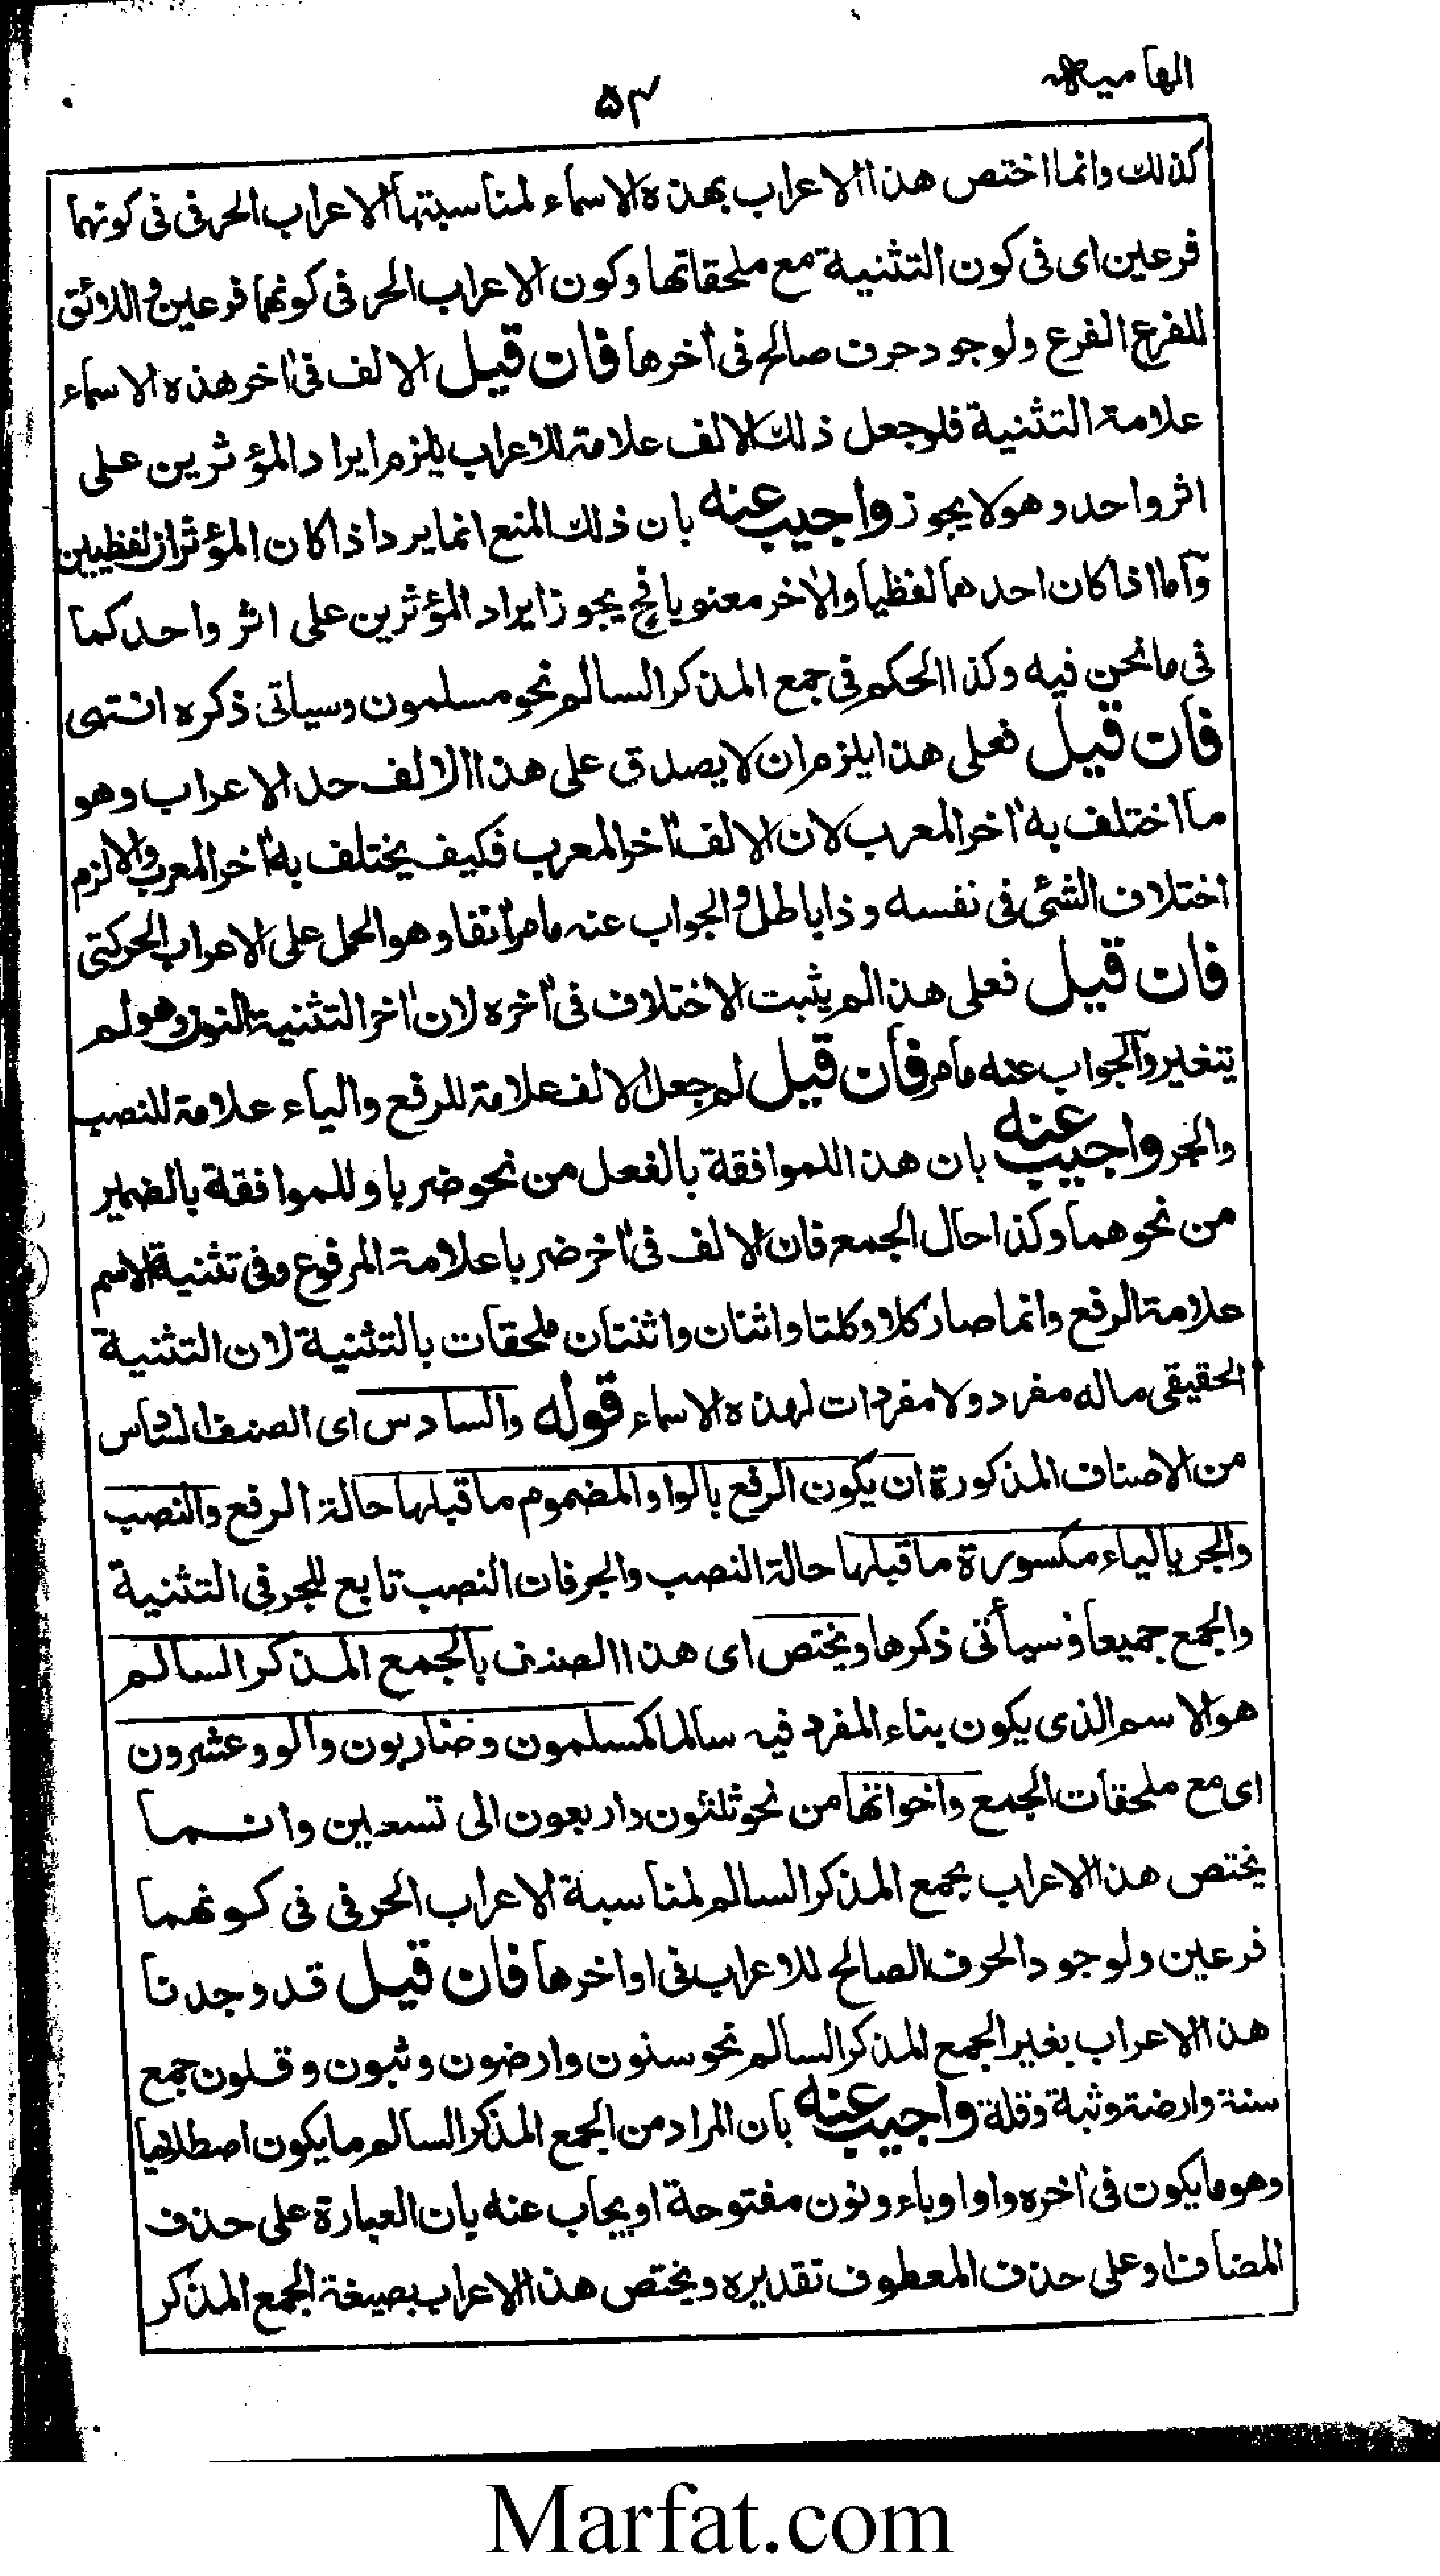 الهاميه
۵۴
كذلك وانما اختص هذا الاعراب بهذه الاسماء لمناسبتها الاعراب الحرفى فى كونهما
فرعين اى فى كون التثنية مع ملحقاتها وكون الاعراب الحرفى كونهما فرعين واللائق
للفرع الفرع ولوجود حرف صالح فى اٰخرها فان قيل الالف فى اٰخر هذه الاسماء
علامة التثنية فلو جعل ذلك الالف علامة للاعراب يلزم ايراد المؤثرين على
اثر واحد وهو لا يجوز واجيب عنه بان ذلك المنع انما يرد اذا كان المؤثران لفظيين
وآما اذا كان احدهما لفظيا والاٰخر معنويا فح يجوز ايراد المؤثرين على اثر واحد كما
فى ما نحن فيه وكذا الحكم فى جمع المذكر السالم نحو مسلمون وسياتى ذكره انتهى
فان قيل فعلى هذا يلزم ان لا يصدق على هذا الالف حد الاعراب وهو
ما اختلف به اٰخر المعرب لان الالف اٰخر المعرب فكيف يختلف به اٰخر المعرب والا لزم
اختلاف الشئ فى نفسه وذا باطل والجواب عنه ما مر اٰنفا وهو الحمل على الاعراب الحركتى
فان قيل فعلى هذا لم يثبت الاختلاف فى اٰخره لان اٰخر التثنية النون وهو لم
يتغير وآلجواب عنه ما مر فان قيل لم جعل الالف علامة للرفع والياء علامة للنصب
والجر واجيب عنه بان هذا للموافقة بالفعل من نحو ضربا وللموافقة بالضمير
من نحو هما وكذا حال الجمع فان الالف فى اٰخر ضربا علامة المرفوع وفى تثنية الاسم
علامة الرفع وانما صار كلا وكلتا واثنان واثنتان ملحقات بالتثنية لان التثنية
الحقيقى ماله مفرد ولا مفردات لهذه الاسماء قوله والسادس اى الصنف السادس
من الاصناف المذكورة ان يكون الرفع بالواو المضموم ما قبلها حالة الرفع والنصب
والجر بالياء مكسورة ما قبلها حالة النصب والجر فان النصب تابع للجر فى التثنية
والجمع جميعا وسيأتى ذكرها ويختص اى هذا الصنف بالجمع المذكر السالم
هو الاسم الذى يكون بناء المفرد فيه سالما كمسلمون وضاربون واولو وعشرون
اى مع ملحقات الجمع واخواتها من نحو ثلثون واربعون الى تسعين وانما
يختص هذا الاعراب بجمع المذكر السالم لمناسبة الاعراب الحرفى فى كونهما
فرعين ولوجود الحرف الصالح للاعراب فى اواخرها فان قيل قد وجدنا
هذا الاعراب بغير الجمع المذكر السالم نحو سنون وارضون وثبون وقلون جمع
سنة وارضة وثبة وقلة واجيب عنه بان المراد من الجمع المذكر السالم ما يكون اصطلاحيا
وهو ما يكون فى اٰخره واو او ياء ونون مفتوحة او يجاب عنه بان العبارة على حذف
المضاف او على حذف المعطوف تقديره ويختص هذا الاعراب بصيغة الجمع المذكر
Marfat.com